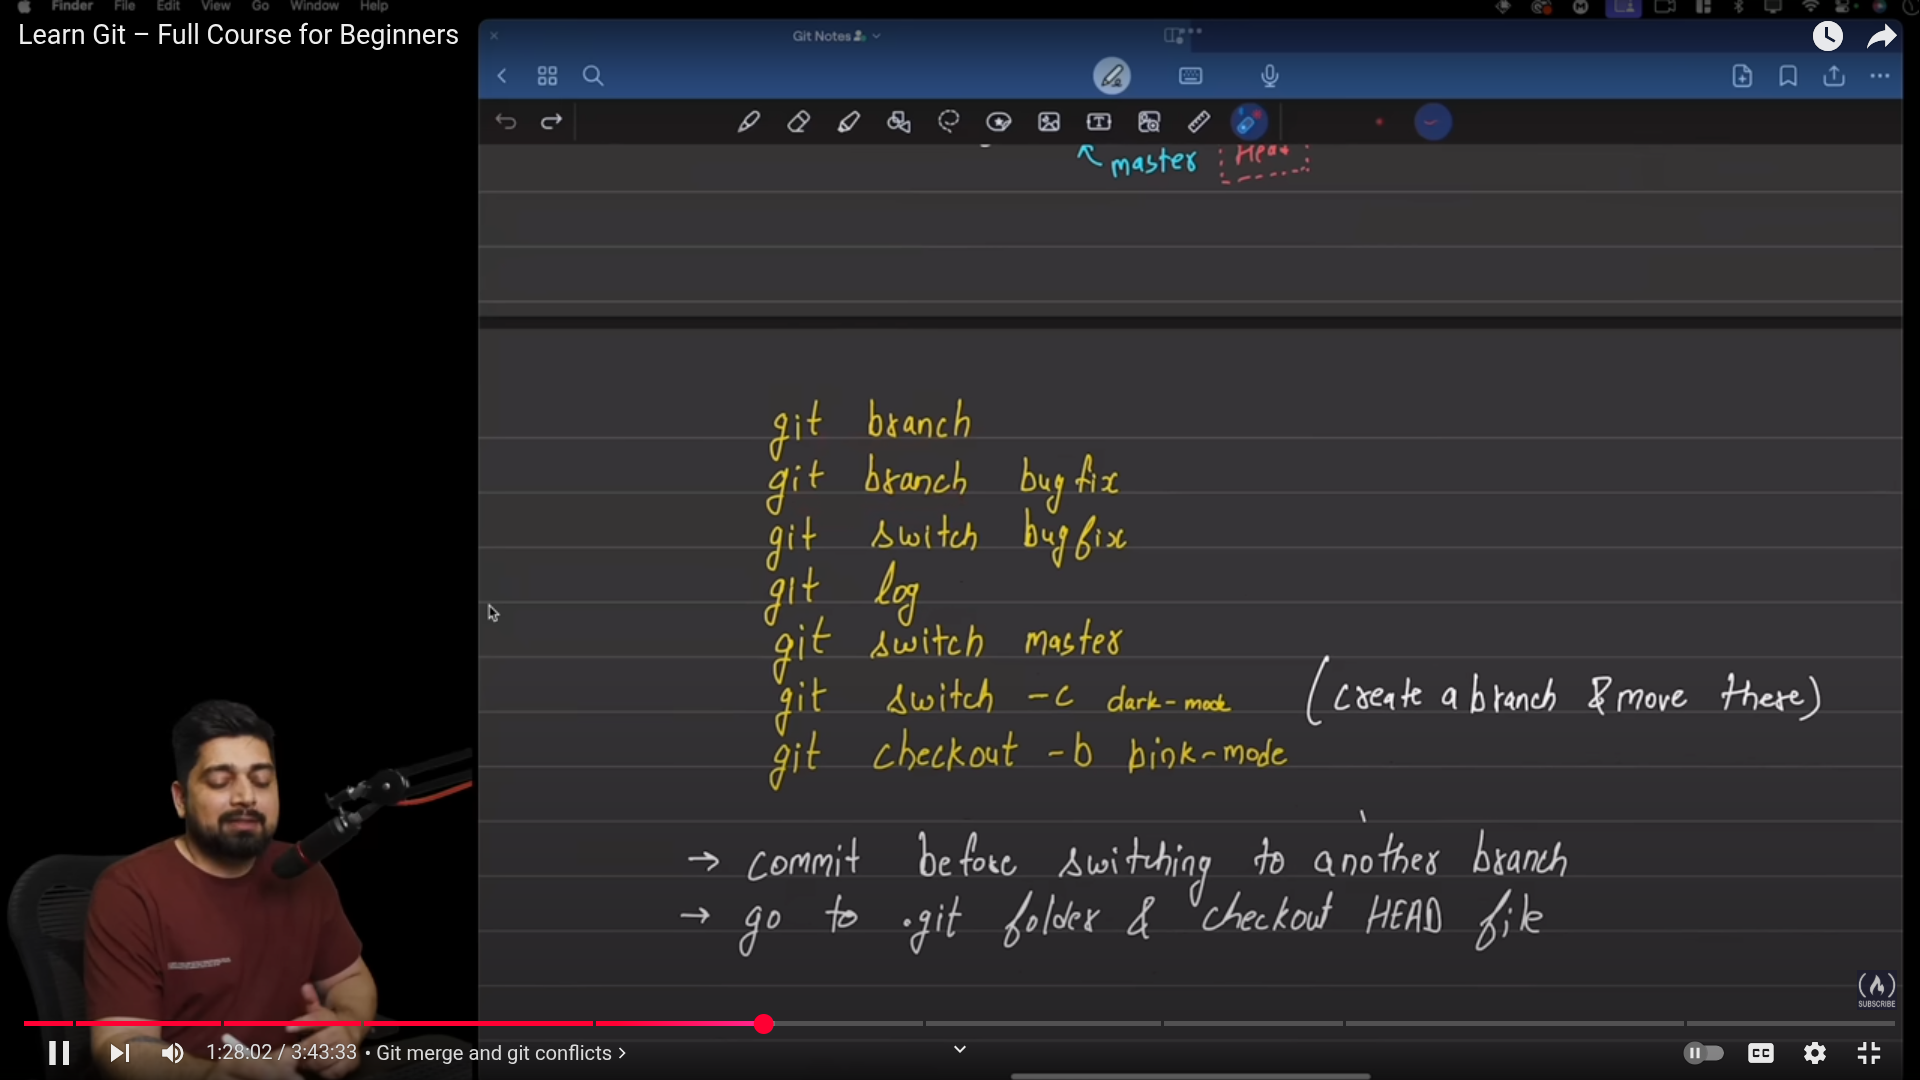 Finder File Edit View Go Window Help
Learn Git – Full Course for Beginners
Git Notes
master Head
git branch
git branch bugfix
git switch bugfix
git log
git switch master
git switch -c dark-mode (create a branch & move there)
git checkout -b pink-mode
→ commit before switching to another branch
→ go to .git folder & checkout HEAD file
SUBSCRIBE
1:28:02 / 3:43:33 • Git merge and git conflicts >
CC